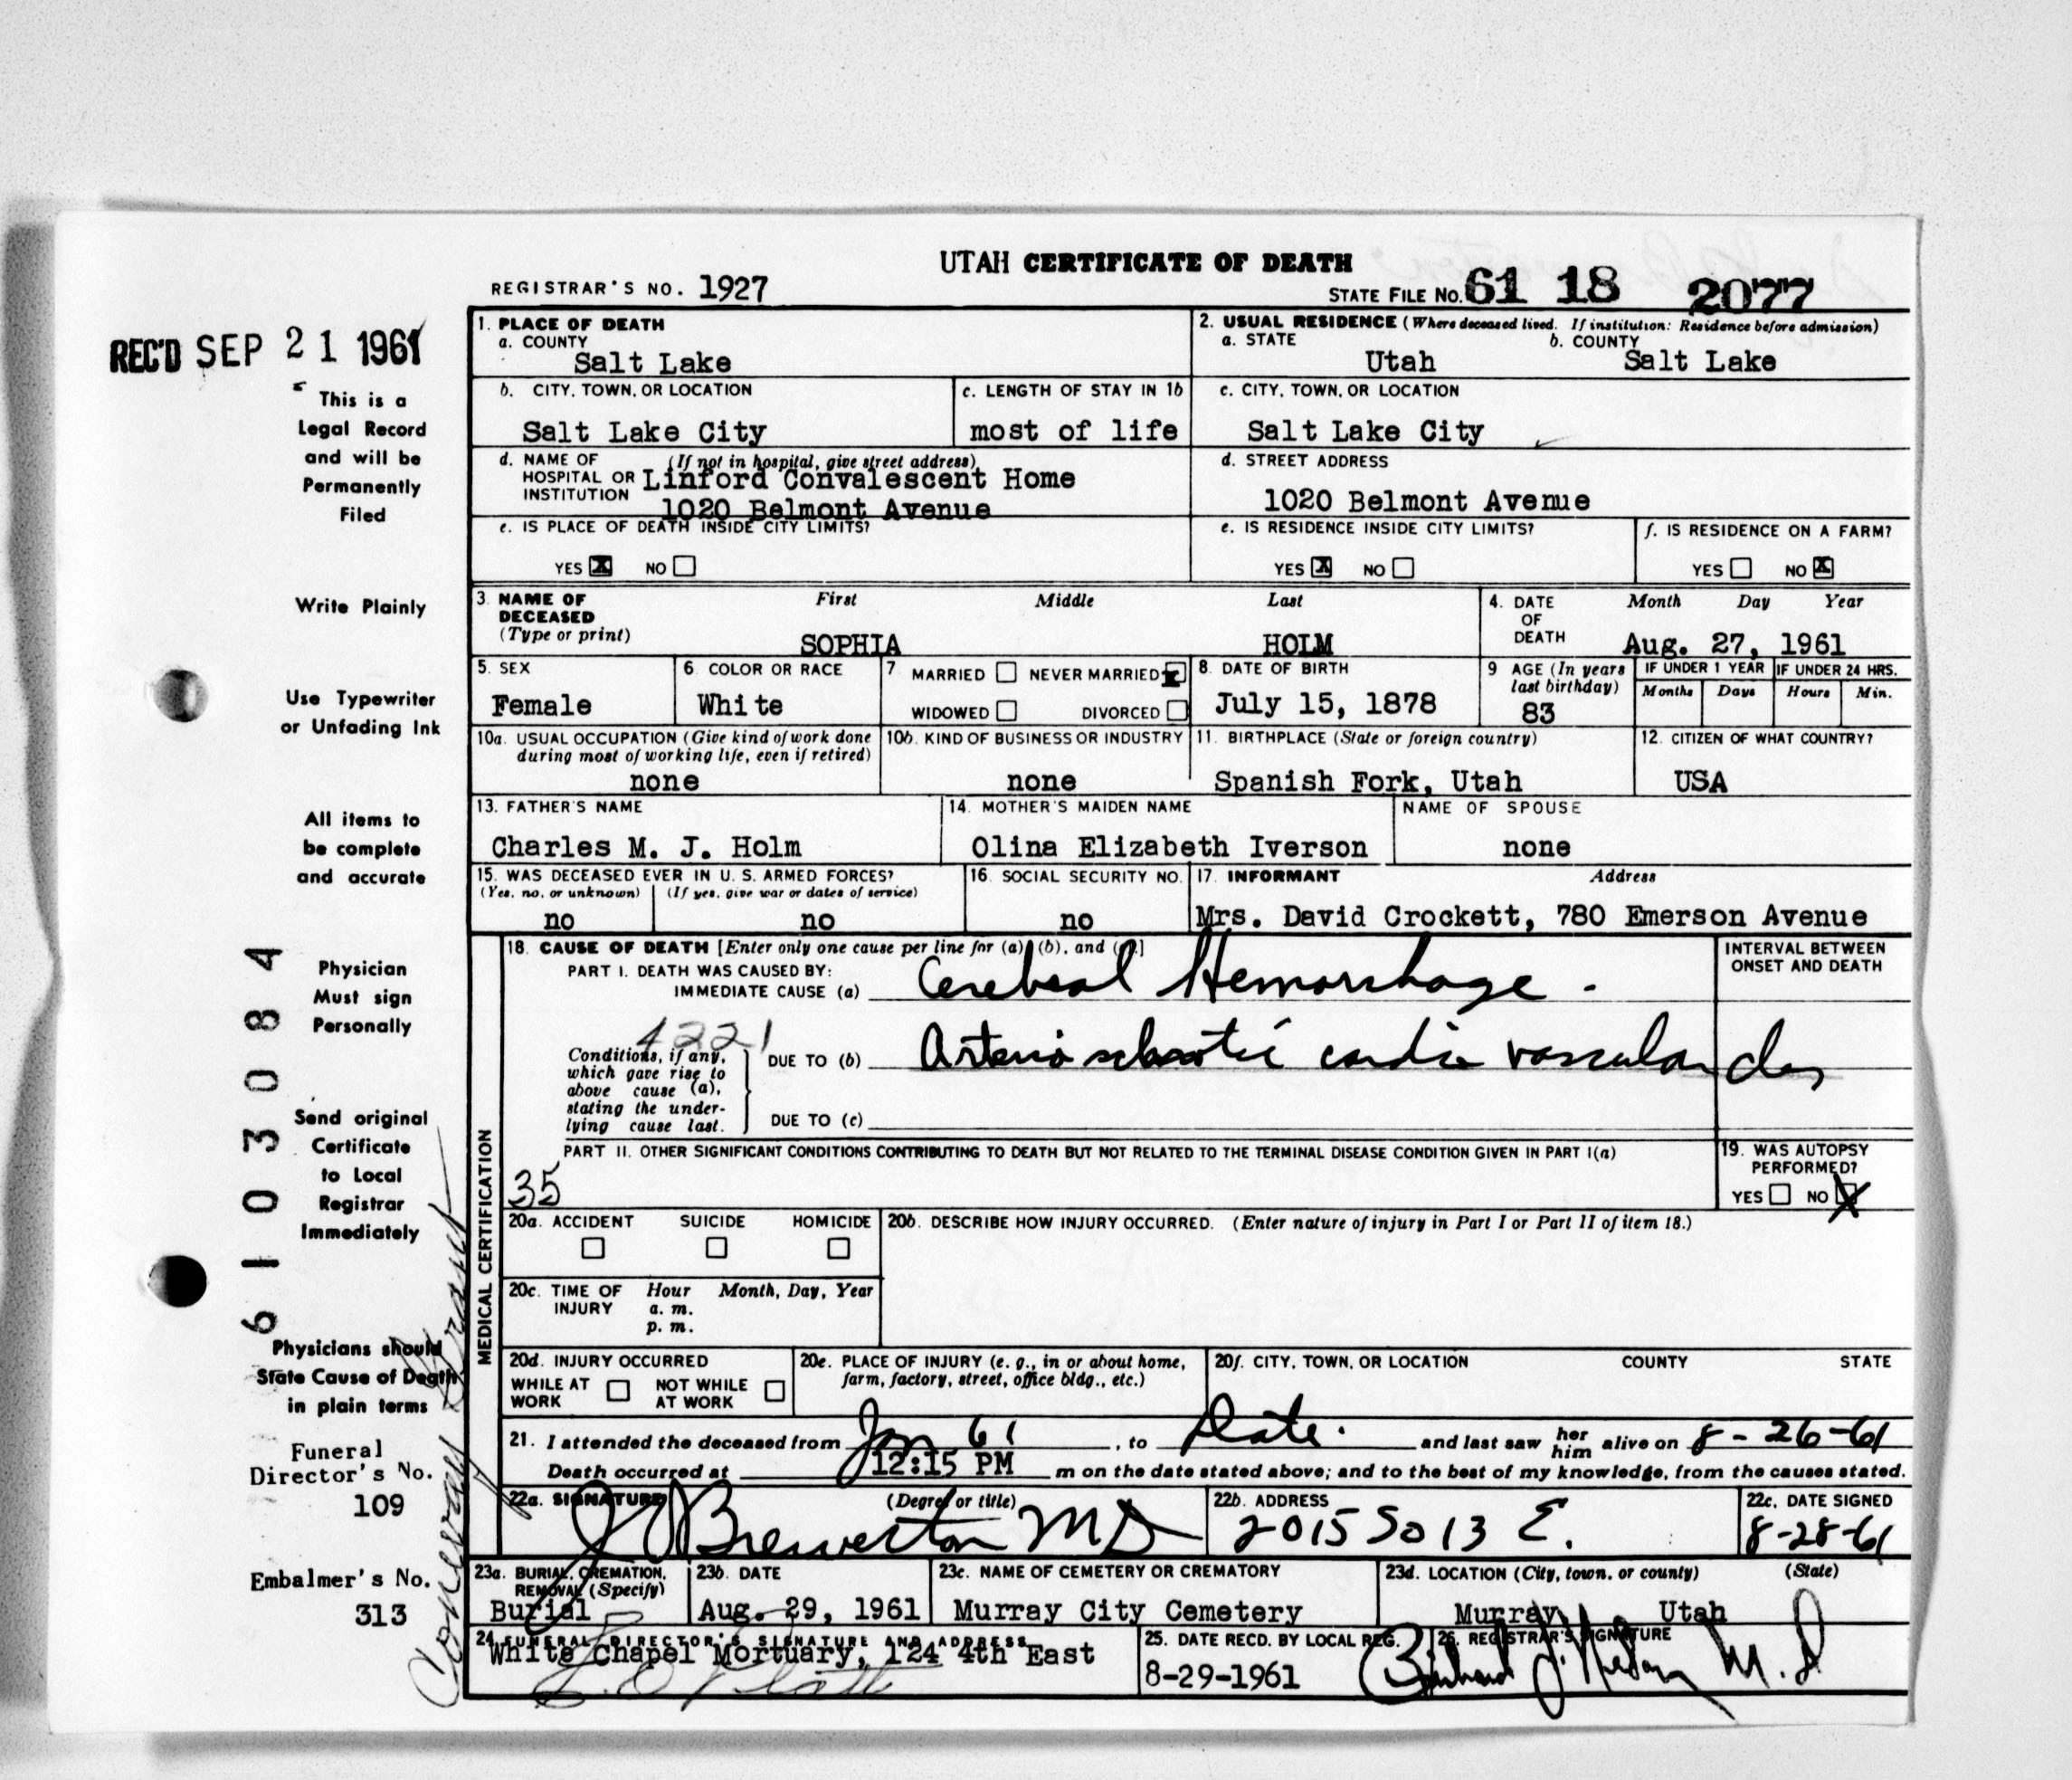 UTAH CERTIFICATE OF DEATH
REGISTRAR'S NO. 1927
STATE FILE NO. 61 18 2077
REC'D SEP 21 1961
This is a
Legal Record
and will be
Permanently
Filed
Write Plainly
Use Typewriter
or Unfading Ink
All items to
be complete
and accurate
Physician
Must sign
Personally
Send original
Certificate
to Local
Registrar
Immediately
Physicians should
State Cause of Death
in plain terms
Funeral
Director's No.
109
Embalmer's No.
313
6103084
Conway
1. PLACE OF DEATH
a. COUNTY
Salt Lake
2. USUAL RESIDENCE (Where deceased lived. If institution: Residence before admission)
a. STATE b. COUNTY
Utah Salt Lake
b. CITY, TOWN, OR LOCATION
Salt Lake City
c. LENGTH OF STAY IN 1b
most of life
c. CITY, TOWN, OR LOCATION
Salt Lake City
d. NAME OF (If not in hospital, give street address)
HOSPITAL OR Linford Convalescent Home
INSTITUTION
1020 Belmont Avenue
d. STREET ADDRESS
1020 Belmont Avenue
e. IS PLACE OF DEATH INSIDE CITY LIMITS?
YES X NO
e. IS RESIDENCE INSIDE CITY LIMITS?
YES X NO
f. IS RESIDENCE ON A FARM?
YES NO X
3. NAME OF First Middle Last
DECEASED
(Type or print)
SOPHIA HOLM
4. DATE Month Day Year
OF
DEATH Aug. 27, 1961
5. SEX
Female
6. COLOR OR RACE
White
7 MARRIED NEVER MARRIED X
WIDOWED DIVORCED
8. DATE OF BIRTH
July 15, 1878
9 AGE (In years
last birthday)
83
IF UNDER 1 YEAR IF UNDER 24 HRS.
Months Days Hours Min.
10a. USUAL OCCUPATION (Give kind of work done
during most of working life, even if retired)
none
10b. KIND OF BUSINESS OR INDUSTRY
none
11. BIRTHPLACE (State or foreign country)
Spanish Fork, Utah
12. CITIZEN OF WHAT COUNTRY?
USA
13. FATHER'S NAME
Charles M. J. Holm
14. MOTHER'S MAIDEN NAME
Olina Elizabeth Iverson
NAME OF SPOUSE
none
15. WAS DECEASED EVER IN U. S. ARMED FORCES?
(Yes, no, or unknown) (If yes, give war or dates of service)
no no
16. SOCIAL SECURITY NO.
no
17. INFORMANT Address
Mrs. David Crockett, 780 Emerson Avenue
MEDICAL CERTIFICATION
18. CAUSE OF DEATH [Enter only one cause per line for (a), (b), and (c).]
PART I. DEATH WAS CAUSED BY:
IMMEDIATE CAUSE (a) Cerebral Hemorrhage.
INTERVAL BETWEEN
ONSET AND DEATH
4221
Conditions, if any,
which gave rise to
above cause (a),
stating the under-
lying cause last.
DUE TO (b) Arteriosclerotic cardio vascular des
DUE TO (c)
PART II. OTHER SIGNIFICANT CONDITIONS CONTRIBUTING TO DEATH BUT NOT RELATED TO THE TERMINAL DISEASE CONDITION GIVEN IN PART I(a)
35
19. WAS AUTOPSY
PERFORMED?
YES NO X
20a. ACCIDENT SUICIDE HOMICIDE
20b. DESCRIBE HOW INJURY OCCURRED. (Enter nature of injury in Part I or Part II of item 18.)
20c. TIME OF Hour Month, Day, Year
INJURY a. m.
p. m.
20d. INJURY OCCURRED
WHILE AT NOT WHILE
WORK AT WORK
20e. PLACE OF INJURY (e. g., in or about home,
farm, factory, street, office bldg., etc.)
20f. CITY, TOWN, OR LOCATION COUNTY STATE
21. I attended the deceased from Jan 61, to Date. and last saw her him alive on 8-26-61
Death occurred at 12:15 PM m on the date stated above; and to the best of my knowledge, from the causes stated.
22a. SIGNATURE (Degree or title)
Brewerton MD
22b. ADDRESS
2015 So 13 E.
22c. DATE SIGNED
8-28-61
23a. BURIAL, CREMATION,
REMOVAL (Specify)
Burial
23b. DATE
Aug. 29, 1961
23c. NAME OF CEMETERY OR CREMATORY
Murray City Cemetery
23d. LOCATION (City, town, or county) (State)
Murray, Utah
24. FUNERAL DIRECTOR'S SIGNATURE AND ADDRESS
White Chapel Mortuary, 124 4th East
25. DATE RECD. BY LOCAL REG.
8-29-1961
26. REGISTRAR'S SIGNATURE
M.D